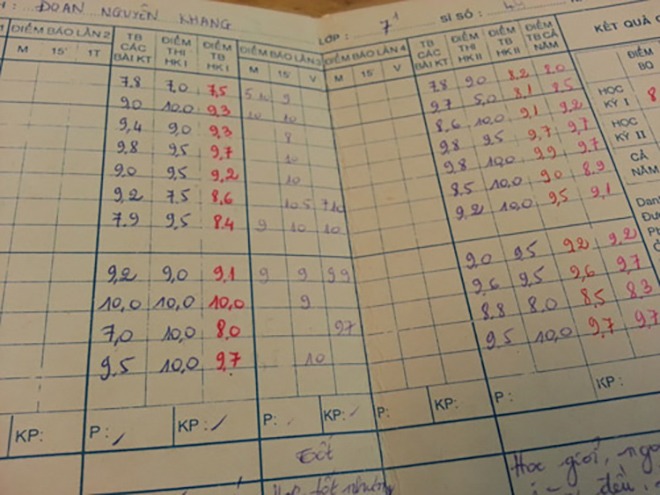 : ĐOÀN NGUYÊN KHANG
LỚP : 7¹ SĨ SỐ : 44
ĐIỂM BÁO LẦN 2 TB CÁC BÀI KT ĐIỂM THI HK I ĐIỂM TB HK I ĐIỂM BÁO LẦN 3 ĐIỂM BÁO LẦN 4 TB CÁC BÀI KT ĐIỂM THI HK II ĐIỂM TB HK II ĐIỂM TB CẢ NĂM KẾT QUẢ
M 15' 1T M 15' V M 15' V ĐIỂM BQ
7,8 7,0 7,5 5 10 9 7,8 9,0 8,2 8,0
9,0 10,0 9,3 10 10 9,7 5,0 8,1 8,5 HỌC KỲ I 8
9,4 9,0 9,3 8 8,6 10,0 9,1 9,2
9,8 9,5 9,7 10 9,8 9,5 9,7 9,7 HỌC KỲ II
9,0 9,5 9,2 10 9,8 10,0 9,9 9,7
9,2 7,5 8,6 10 5 7 10 8,5 10,0 9,0 8,9 CẢ NĂM
7,9 9,5 8,4 9 10 10 9,2 10,0 9,5 9,1
9,2 9,0 9,1 9 9 9 9 9,0 9,5 9,2 9,2
10,0 10,0 10,0 9 9,6 9,5 9,6 9,7
7,0 10,0 8,0 9 7 8,8 8,0 8,5 8,3
9,5 10,0 9,7 10 9,5 10,0 9,7 9,7
KP: P: KP: P: KP: P: KP: P: KP:
Tốt
Học giỏi,
tốt nhưng